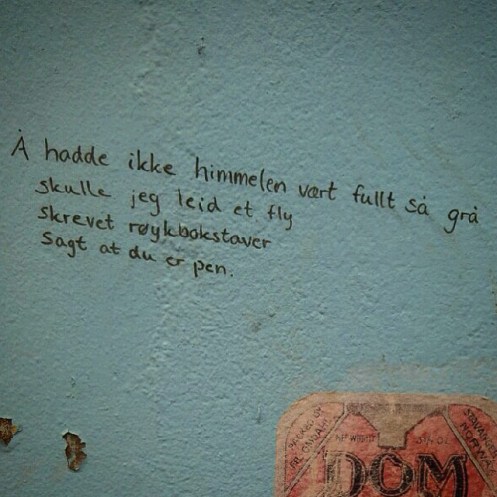 Å hadde ikke himmelen vært fullt så grå
skulle jeg leid et fly
skrevet røykbokstaver
Sagt at du er pen.
DOM